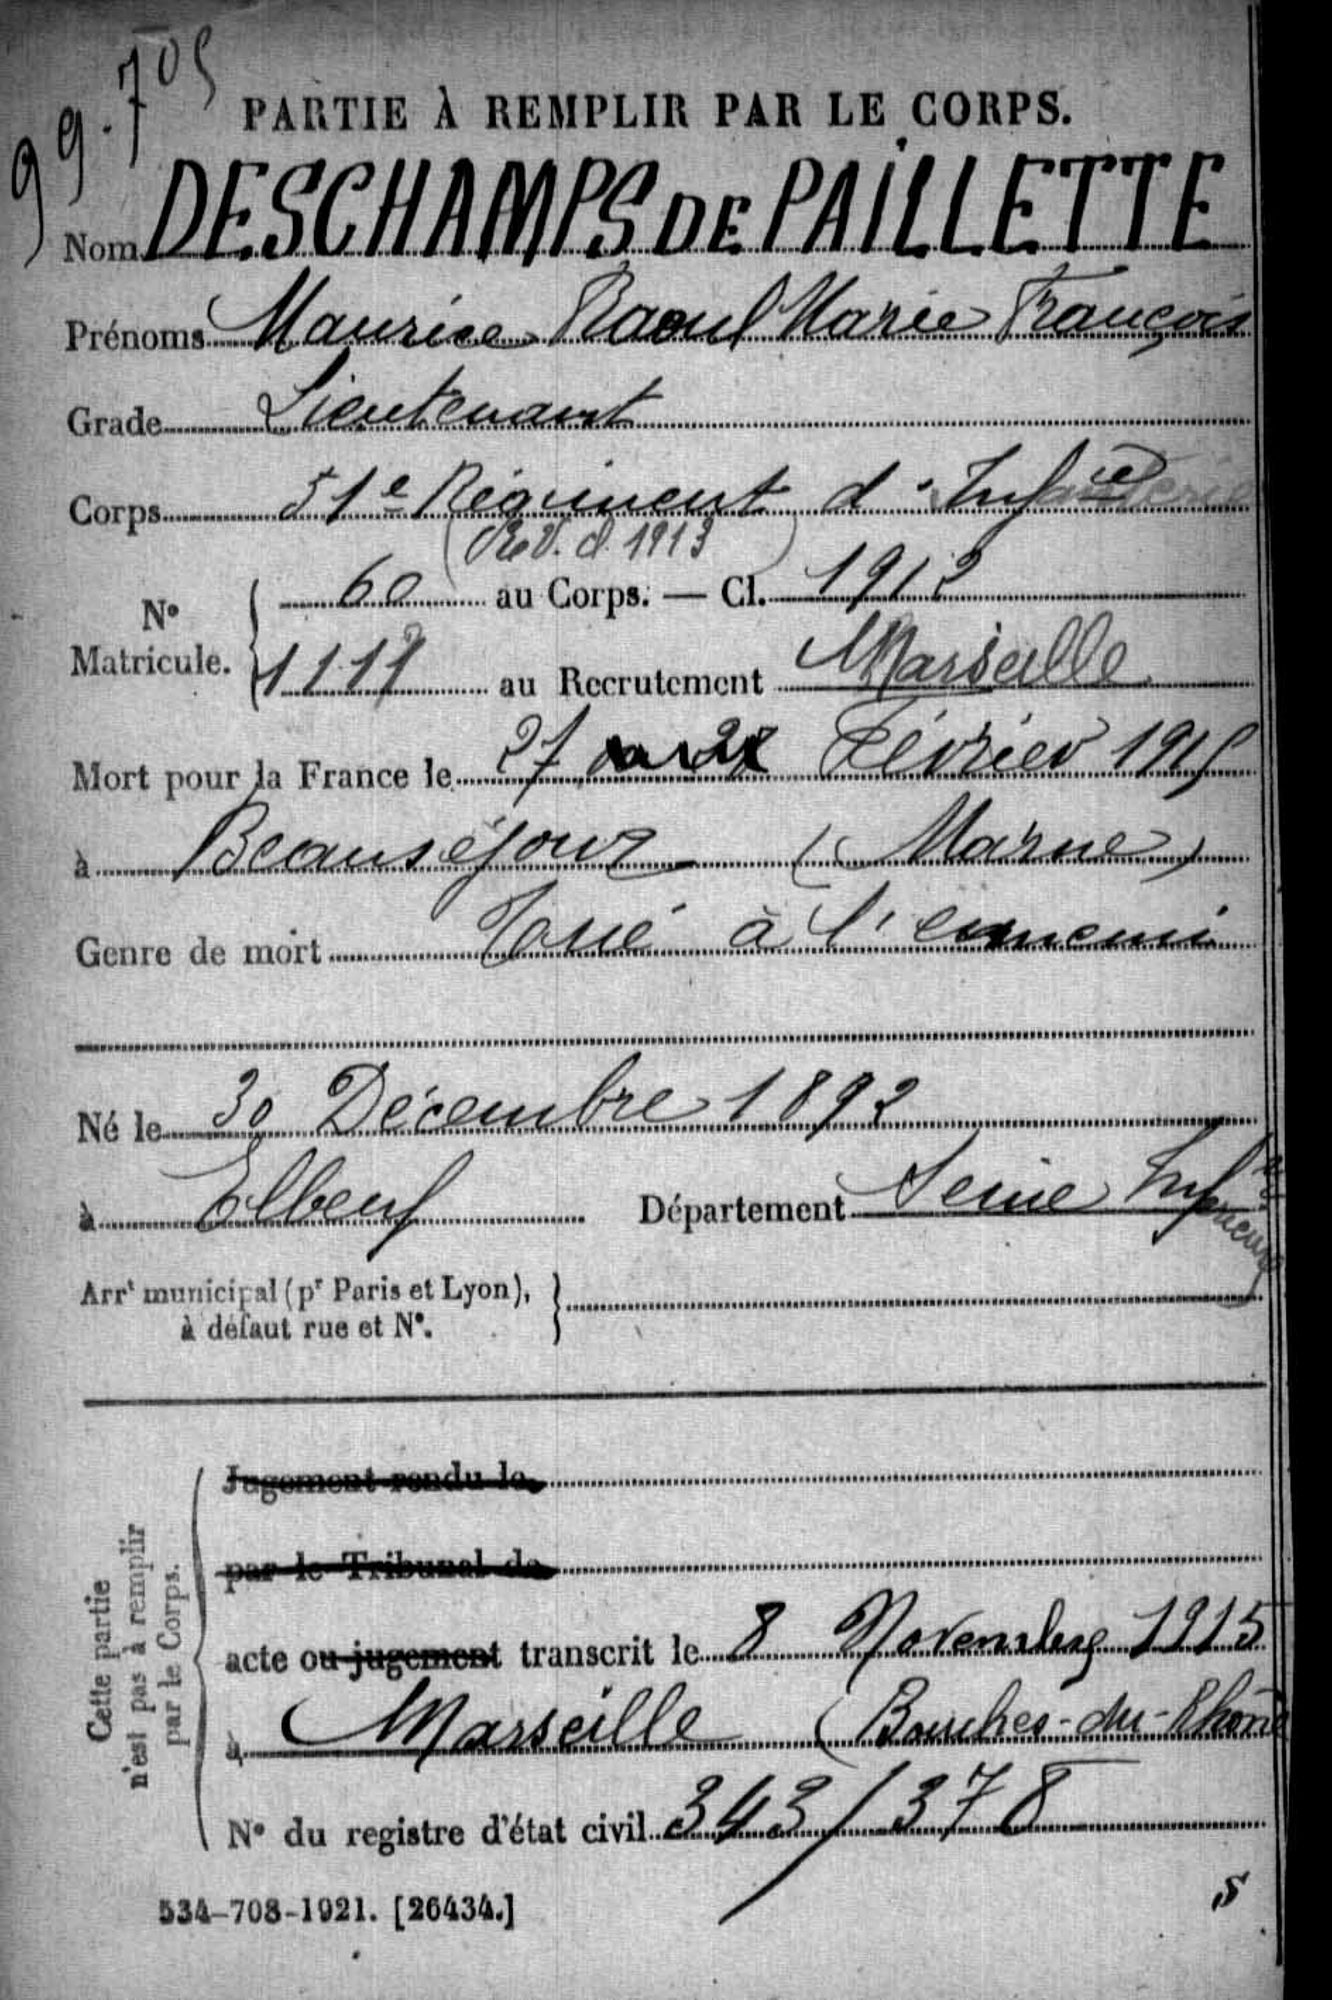 99.705
PARTIE À REMPLIR PAR LE CORPS.
Nom DESCHAMPS DE PAILLETTE
Prénoms Maurice Raoul Marie François
Grade Lieutenant
Corps 51e Régiment d'Infanterie
(Rev. d. 1913)
N° Matricule. { 60 au Corps. — Cl. 1912
1117 au Recrutement Marseille
Mort pour la France le 27 au 28 Février 1915
à Beauséjour (Marne)
Genre de mort Tué à l'ennemi
Né le 30 Décembre 1892
à Elbeuf Département Seine Inférieure
Arrt municipal (pr Paris et Lyon),
à défaut rue et N°.
Cette partie
n'est pas à remplir
par le Corps.
Jugement rendu le
par le Tribunal de
acte ou jugement transcrit le 8 Novembre 1915
à Marseille (Bouches-du-Rhône
N° du registre d'état civil 343/378
534-708-1921. [26434.]
S